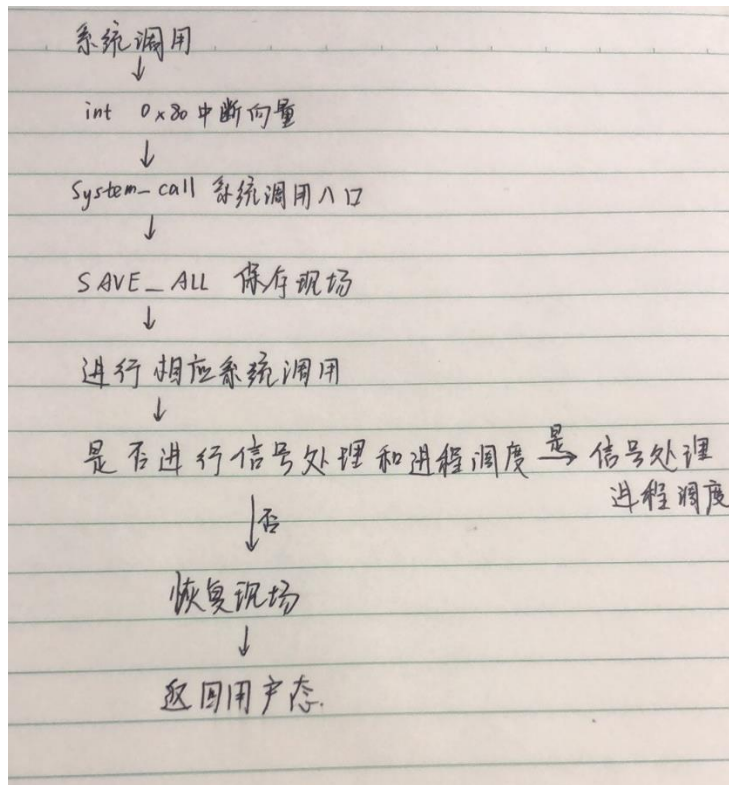 系统调用
↓
int 0x80 中断向量
↓
System_call 系统调用入口
↓
SAVE_ALL 保存现场
↓
进行相应系统调用
↓
是否进行信号处理和进程调度 是→ 信号处理
进程调度
↓否
恢复现场
↓
返回用户态.